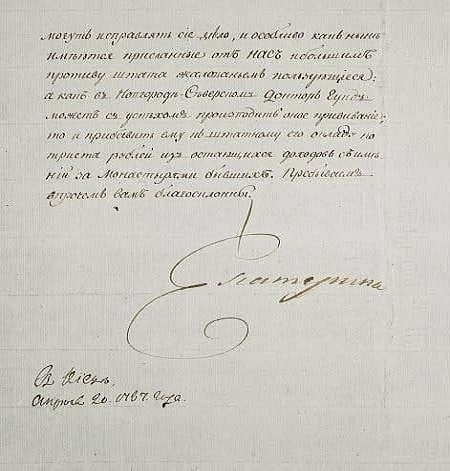 могутъ исправлять сіе дѣло, и особливо какъ нынѣ
имѣются присланные отъ НАСЪ и большимъ
противу штата жалованьемъ пользующіеся:
а какъ въ Новгородѣ-Сѣверскомъ Докторъ
можетъ съ успѣхомъ производить оное прививаніе,
то и прибавить ему къ штатному его окладу по
триста рублей изъ остающихся доходовъ съ имѣ
ній за Монастырями бывшихъ. Пребываемъ
впрочемъ вамъ благосклонны.
Екатерина
В Кіевѣ,
Апрѣля 20. 1787. года.